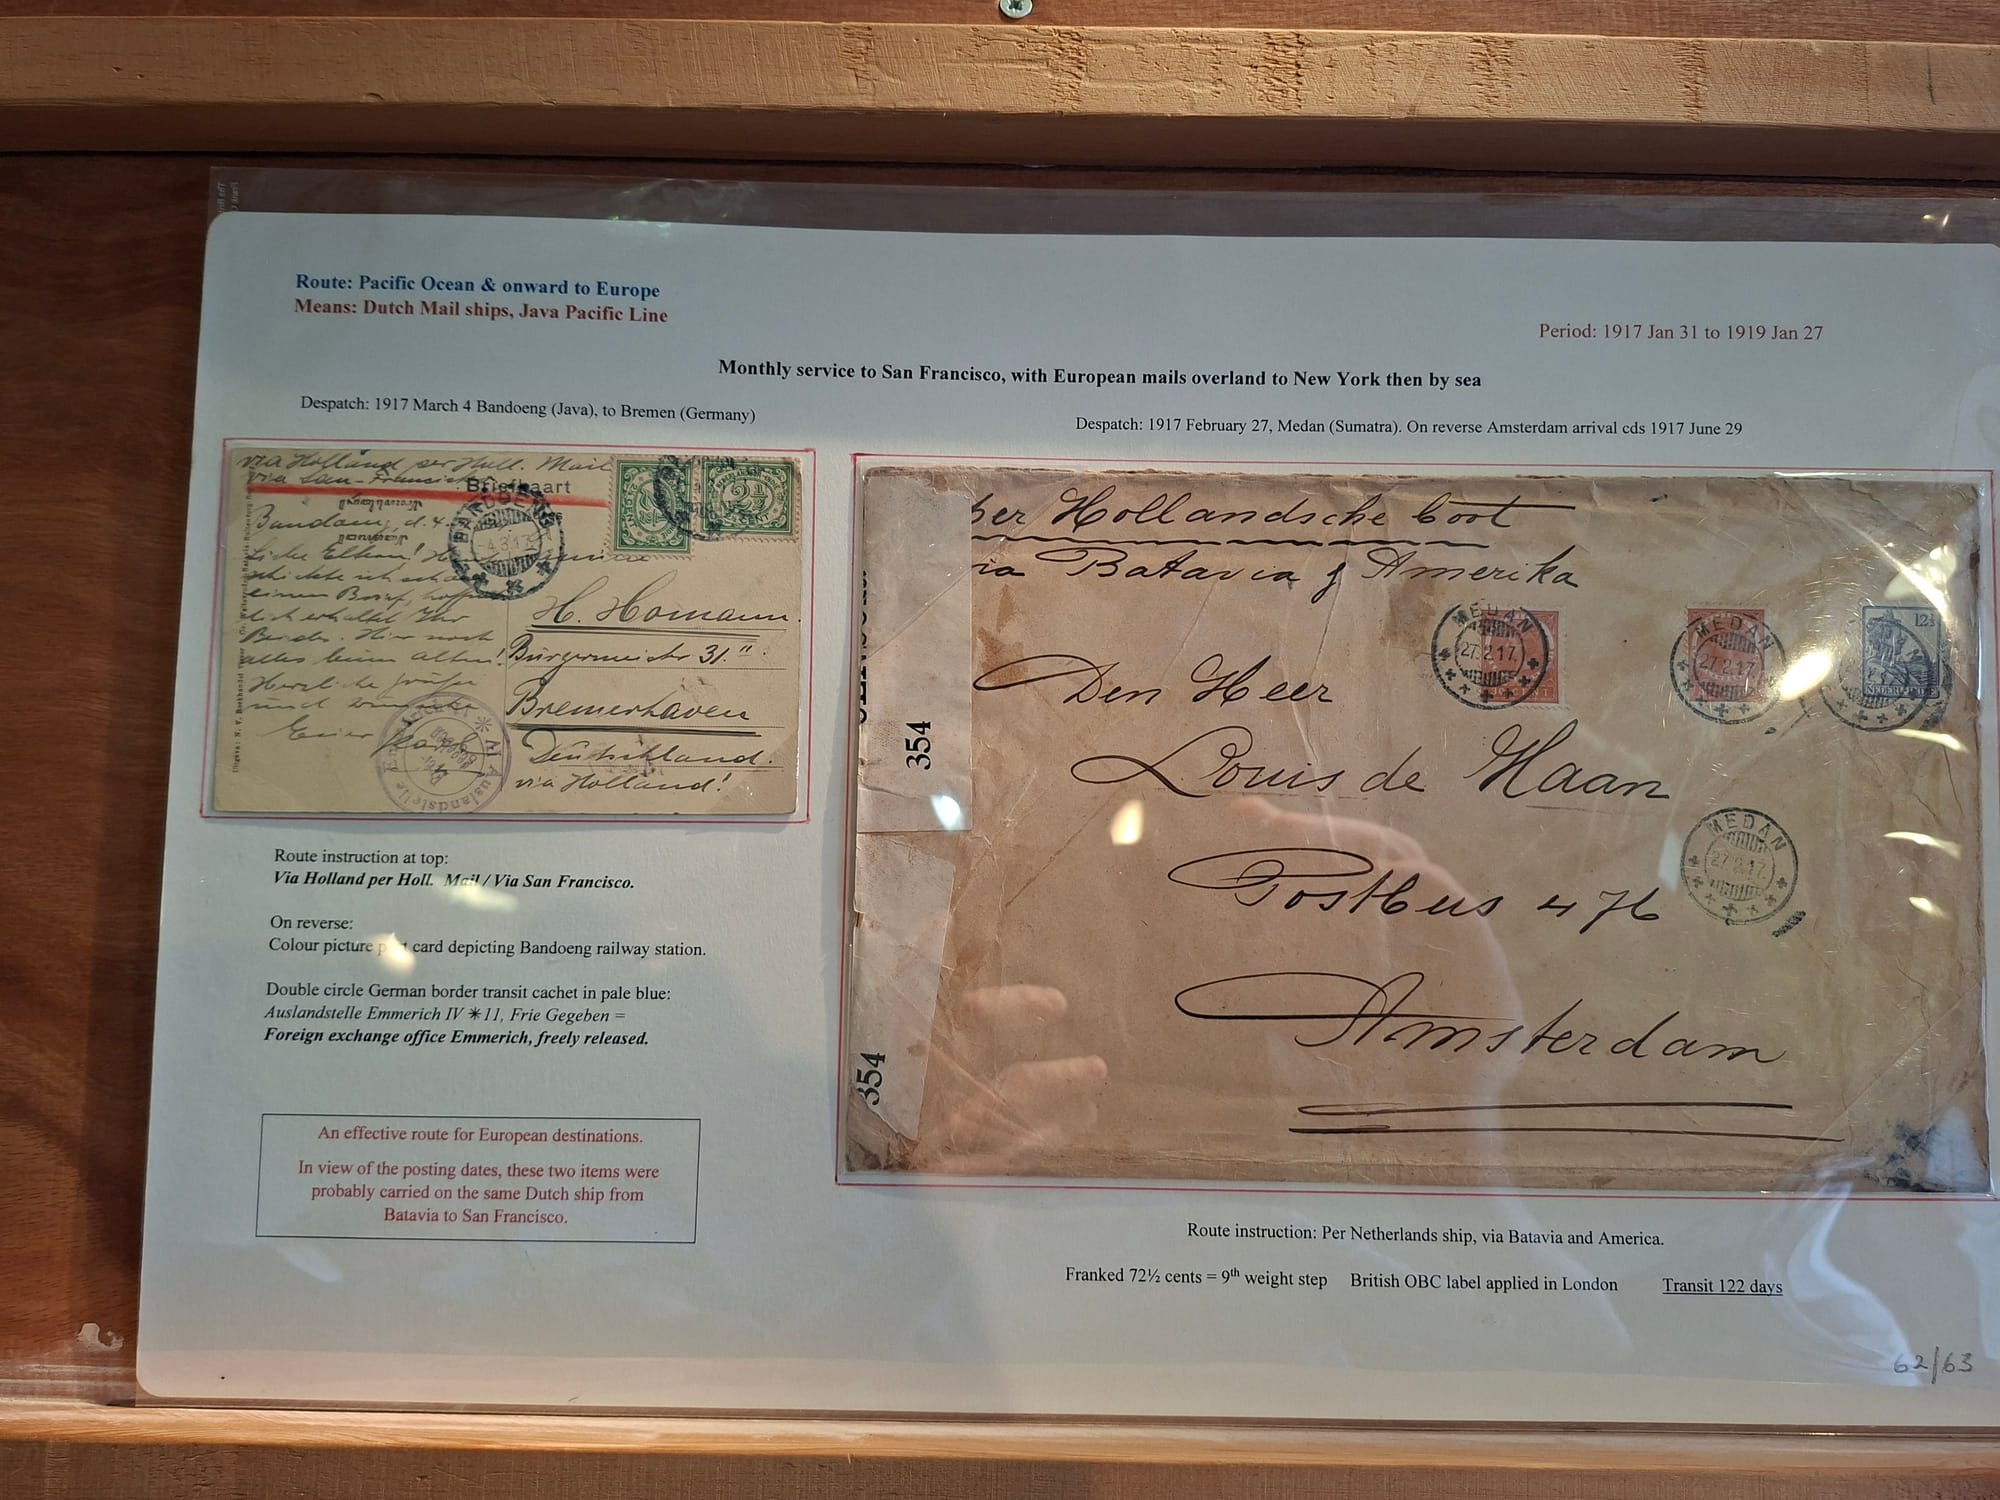 Route: Pacific Ocean & onward to Europe
Means: Dutch Mail ships, Java Pacific Line
Period: 1917 Jan 31 to 1919 Jan 27
Monthly service to San Francisco, with European mails overland to New York then by sea
Despatch: 1917 March 4 Bandoeng (Java), to Bremen (Germany)
via Holland per Holl. Mail
via San-Francisco
Briefkaart
Bandoeng, d. 4
einen Brief,
Ihr
Beides. Hier noch
alles beim alten!
Herzliche Grüße
und
Euer
H. Homann.
Bürgermeister 31."
Bremerhaven
Deutschland.
via Holland!
Route instruction at top:
Via Holland per Holl. Mail / Via San Francisco.
On reverse:
Colour picture card depicting Bandoeng railway station.
Double circle German border transit cachet in pale blue:
Auslandstelle Emmerich IV ✳11, Frie Gegeben =
Foreign exchange office Emmerich, freely released.
An effective route for European destinations.
In view of the posting dates, these two items were
probably carried on the same Dutch ship from
Batavia to San Francisco.
Despatch: 1917 February 27, Medan (Sumatra). On reverse Amsterdam arrival cds 1917 June 29
per Hollandsche boot
via Batavia & Amerika
MEDAN
27.2.17.
MEDAN
27.2.17
12½
Den Heer
Louis de Haan
354
MEDAN
27.2.17.
Postbus 476
Amsterdam
354
Route instruction: Per Netherlands ship, via Batavia and America.
Franked 72½ cents = 9th weight step British OBC label applied in London Transit 122 days
62/63